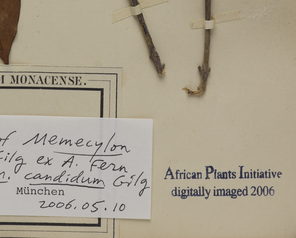 M MONACENSE.
of Memecylon
Gilg ex A. Fern
n. candidum Gilg
München
2006.05.10
African Plants Initiative
digitally imaged 2006